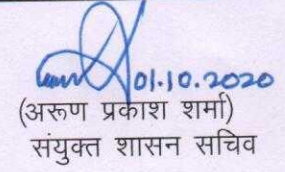 01.10.2020
(अरूण प्रकाश शर्मा)
संयुक्त शासन सचिव